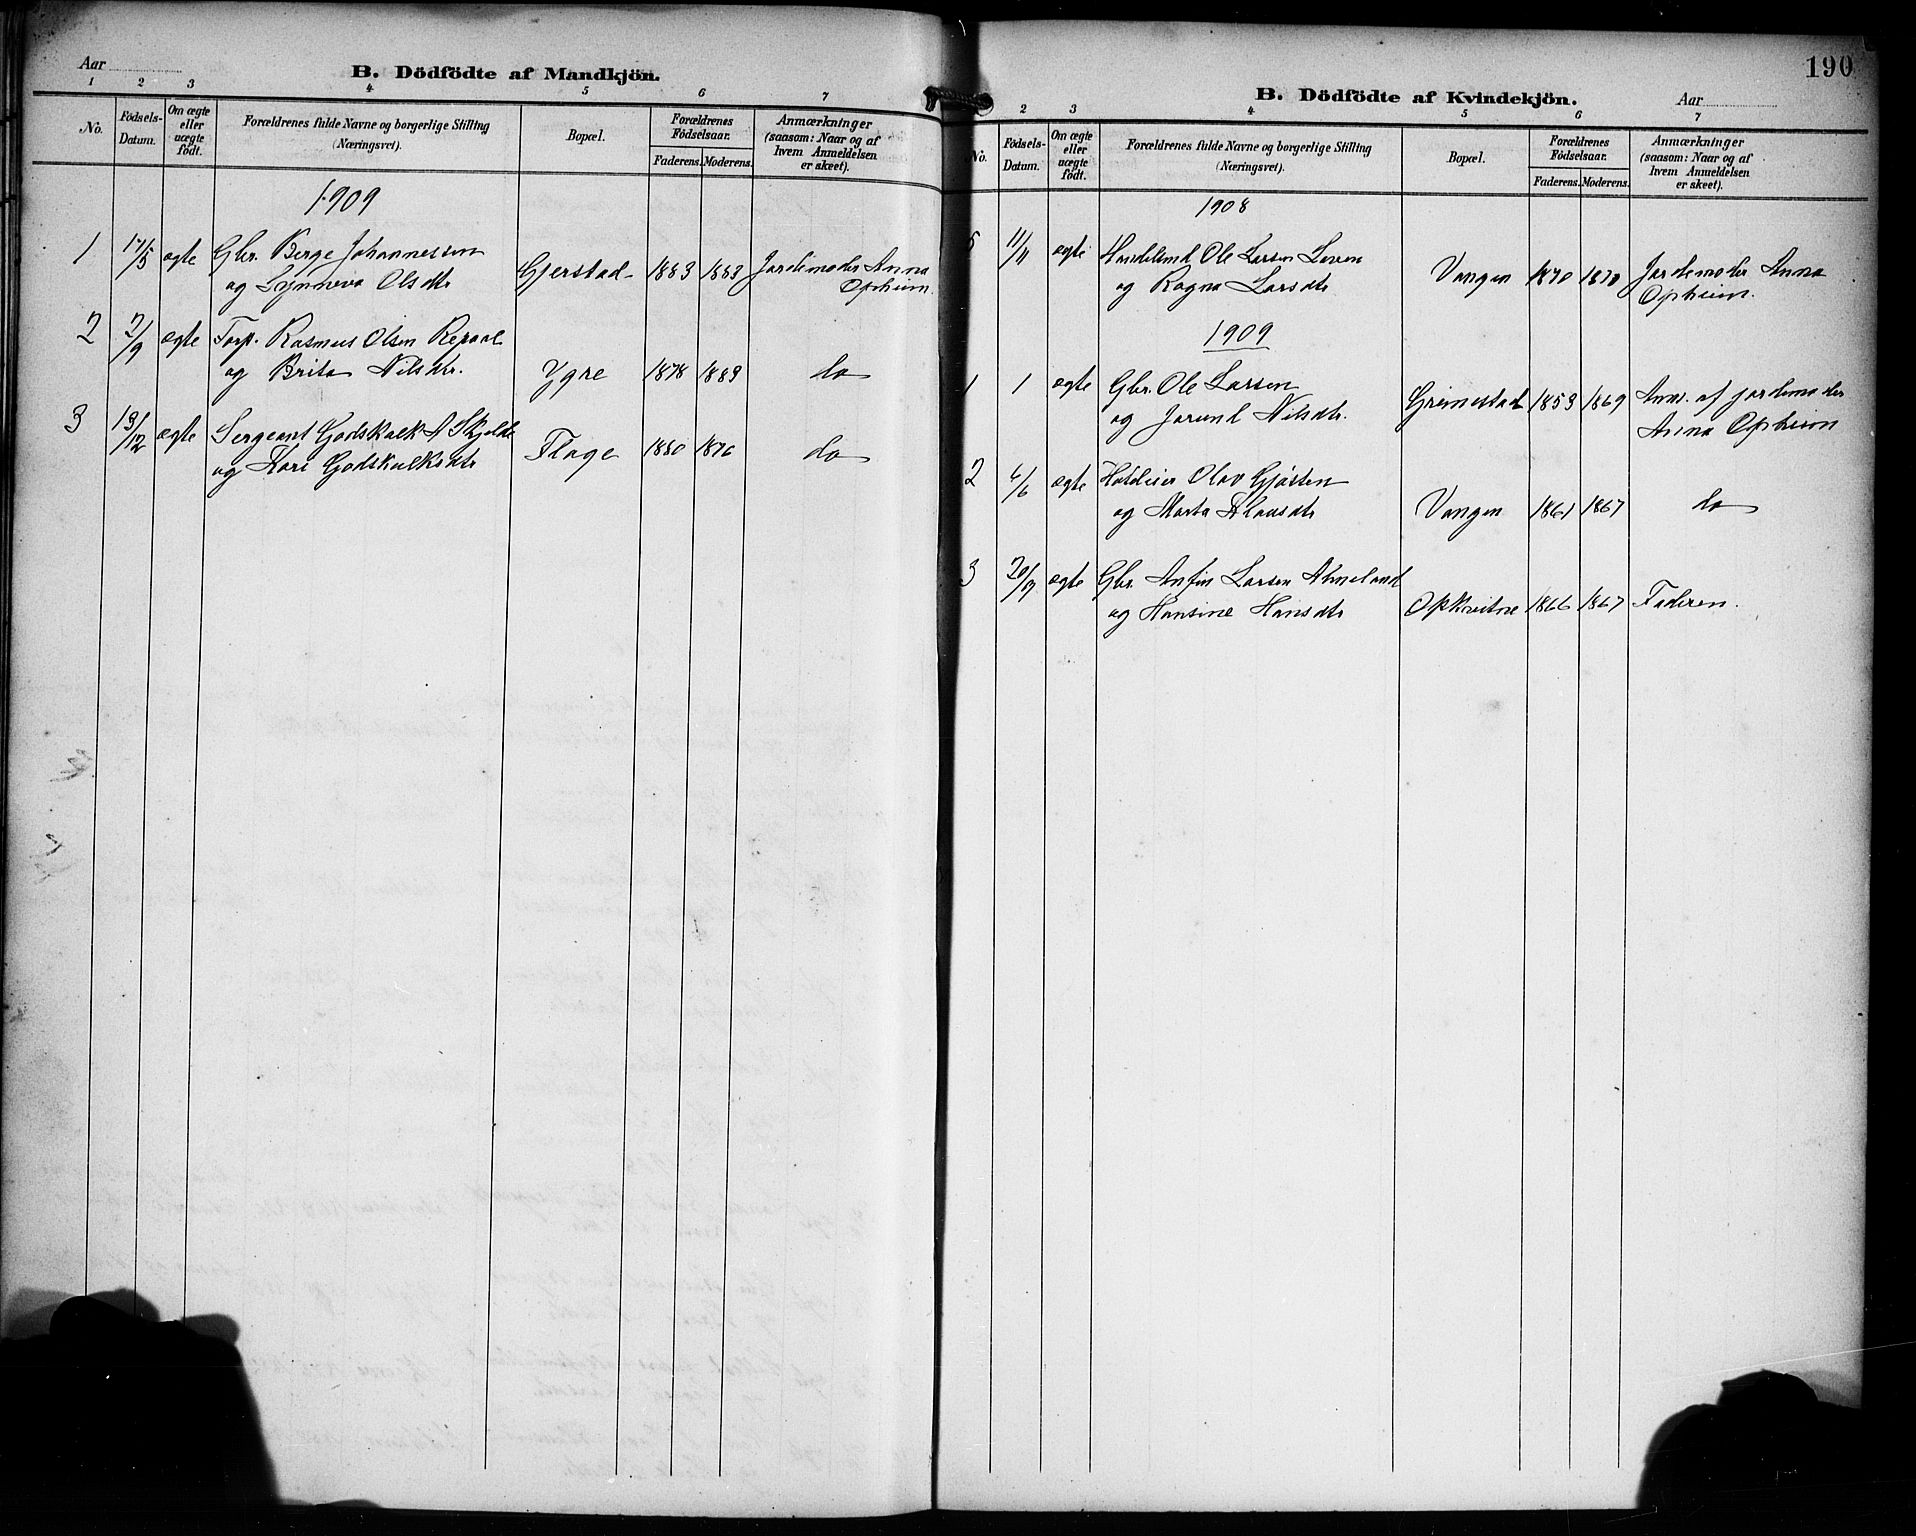 Aar
B. Dödfödte af Mandkjön.
1 2 3 4 5 6 7
No.
Födsels-Datum.
Om ægte eller uægte födt.
Forældrenes fulde Navne og borgerlige Stilling
(Næringsvei).
Bopæl.
Forældrenes Födselsaar.
Faderens. Moderens.
Anmærkninger
(saasom: Naar og af
hvem Anmeldelsen
er skeet).
1909
1 17/5 ægte Gbr. Berge Johannessen
og Synneva Olsdtr Gjerstad 1883 1883 Jordemoder Anna
Opheim.
2 2/9 ægte Torp. Rasmus Olsen Repaal
og Brita Nilsdtr. Ygre 1878 1889 do
3 13/12 ægte Sergeant Godskalk A Skjelde
og Kari Godskalksdtr Flage 1880 1876 do
190
B. Dödfödte af Kvindekjön.
Aar
2 3 4 5 6 7
No.
Födsels-Datum.
Om ægte eller uægte födt.
Forældrenes fulde Navne og borgerlige Stilling
(Næringsvei).
Bopæl.
Forældrenes Födselsaar.
Faderens. Moderens.
Anmærkninger
(saasom: Naar og af
hvem Anmeldelsen
er skeet).
1908
5 11/11 ægte Handelsmd Ole Larsen
og Ragna Larsdtr Vangen 1870 1870 Jordemoder Anna
Opheim.
1909
1 1 ægte Gbr. Ole Larsen
og Jorund Nilsdtr. Grimestad 1853 1869 Anm. af jordemoder
Anna Opheim
2 6/6 ægte Hotelier Olav Gjøstein
og Marta Klausdtr Vangen 1861 1867 do
3 20/9 ægte Gbr. Anfin Larsen
og Hansine Hansdtr Opkvitne 1866 1867 Faderen.